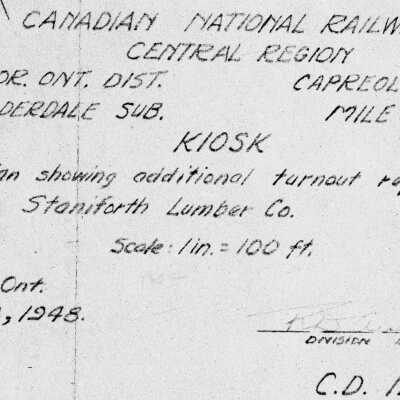 CANADIAN NATIONAL RAILW
CENTRAL REGION
OR. ONT. DIST. CAPREOL
DERDALE SUB. MILE
KIOSK
an showing additional turnout re
Staniforth Lumber Co.
Scale: 1 in. = 100 ft.
Ont.
, 1948.
DIVISION
C.D. 1